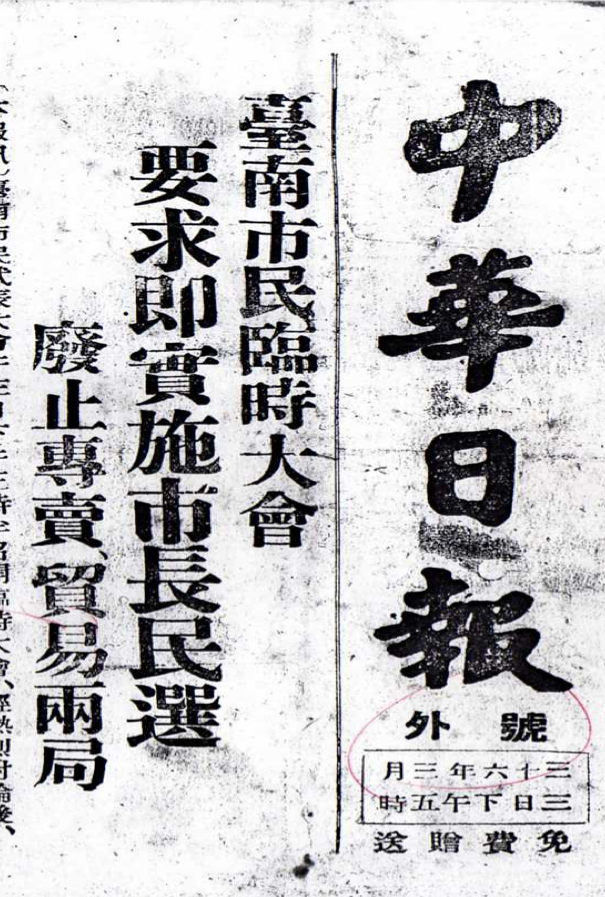 中華日報
號外
三十六年三月
三日下午五時
免費贈送
臺南市民臨時大會
要求即實施市長民選
廢止專賣、貿易兩局